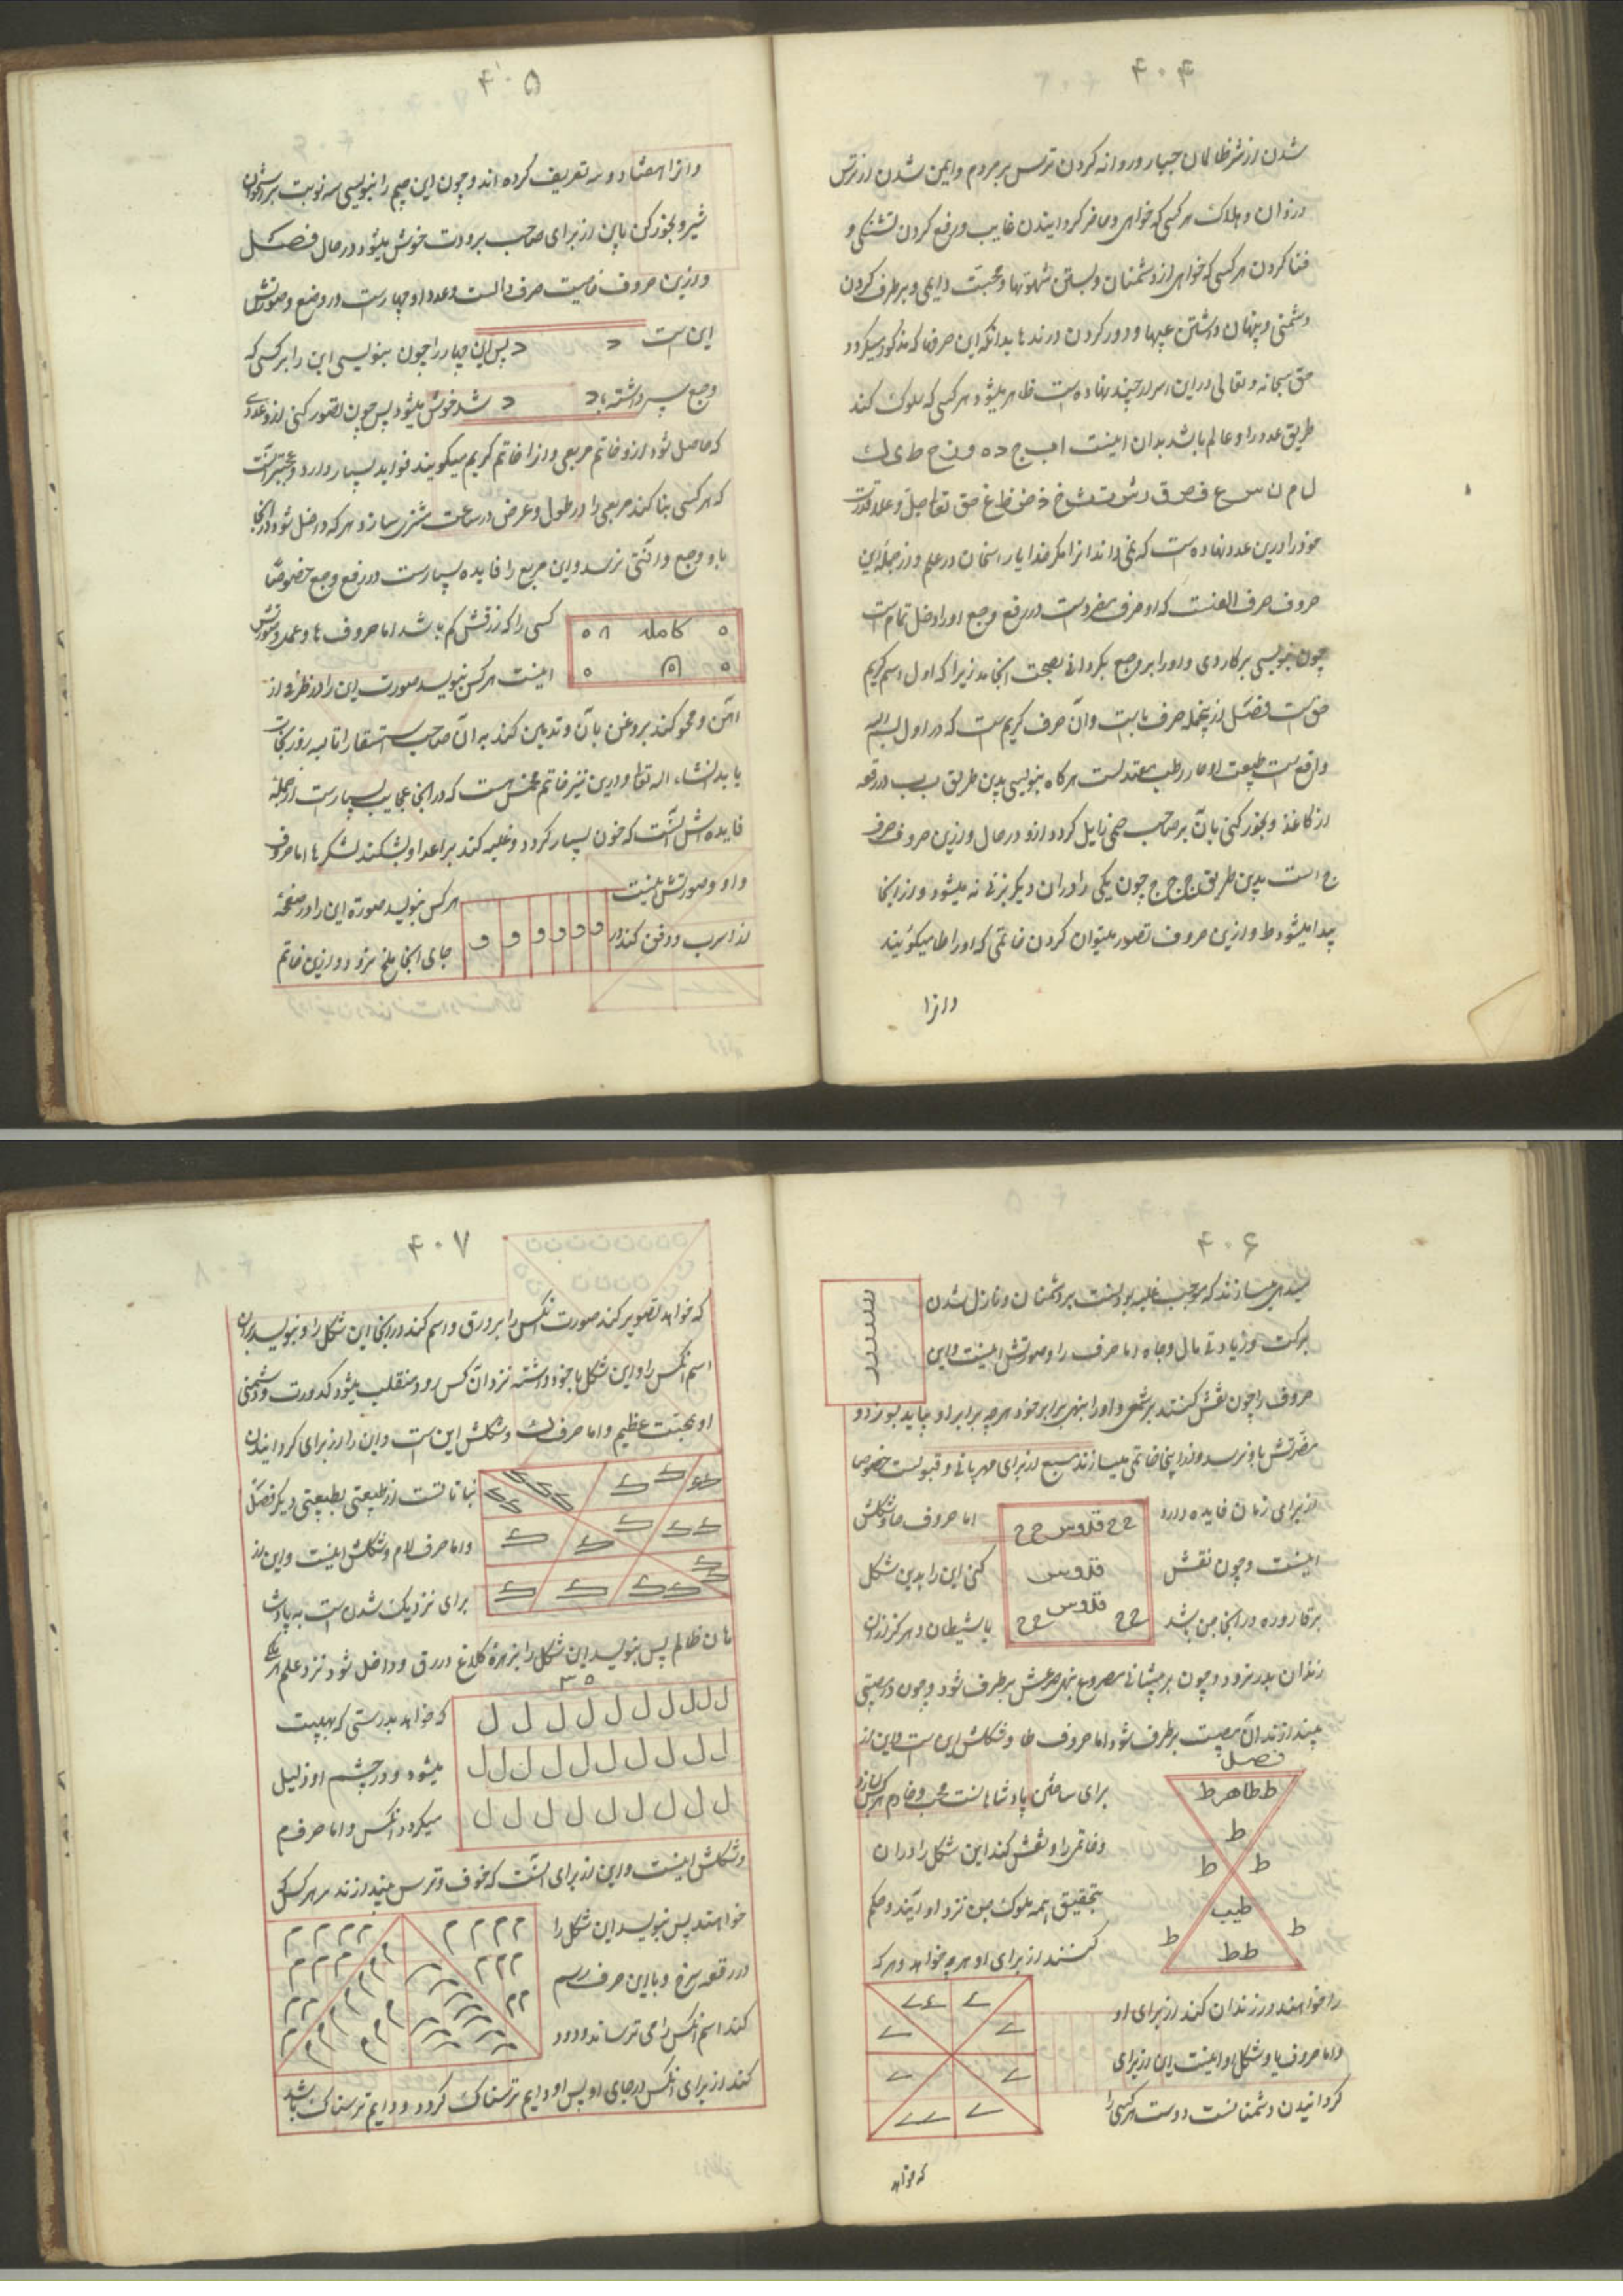 ۴۰۴
شدن از شر ظالمان جبار و روانه کردن ترس بر مردم و ایمن شدن از ترس
دزدان و هلاک هر کسی که خواهی و حاضر گردانیدن غایب و رفع کردن تشنگی و
فنا کردن هر کسی که خواهی از دشمنان و بستن شهوتها و محبت دایمی و برطرف کردن
دشمنی و پنهان داشتن عیبها و دور کردن درندها بدانکه این حرفها که مذکور میگردد
حق سبحانه و تعالی در این اسرار چند نهاده است ظاهر میشود هر کسی که سلوک کند
طریق عدد را و عالم باشد بدان اینست ا ب ج د ه و ز ح ط ی ک
ل م ن س ع ف ص ق ر ش ت ث خ ذ ض ظ غ حق تعالی جل و علا قدرت
خود را درین عدد نهاده است که نمی‌داند انرا مگر خدا یا راسخان در علم و از جمله این
حروف حرف الفست که او حرف مفردست در رفع وجع او را دخل تمام است
چون بنویسی بر کاردی و او را بر وجع بگردانی بصحت انجامد زیرا که اول اسم کریم
حق است فصل از جمله حرف با است و آن حرف کریم است که در اول بسم الله
واقع است طبیعت او حار رطب معتدلست هر کاه بنویسی بدین طریق ب ب در رقعه
از کاغذ و بخور کنی بآن بر صاحب حمی زایل کردد ازو در حال و ازین حروف حرف
ج است بدین طریق ج ج ج ج چون یکی را در ان دیگر بزنی نه میشود و از اینجا
پیدا میشود ط و ازین حروف تصور میتوان کردن خاتمی که او را طا میکویند
و انرا
۴۰۵
و انرا هفتاد و سه تعریف کرده اند و چون این جیم را بنویسی سه نوبت
و بخور کن باین از برای صاحب برودت خوش میشود در حال فصل
و ازین حروف خاصیت حرف دالست و عدد او چهارست در وضع و صورتش
این است د د پس این چهار را چون بنویسی این را بر کسی که
وجع سر داشته باشد د د خوش میشود پس چون تصور کنی ازو عددی
که حاصل شود ازو خاتم مربعی و انرا خاتم کریم میکویند فواید بسیار دارد
که هر کسی بنا کند مربعی را در طول و عرض در ساعت مشتری سازد و هر که داخل شود در انجا
باو وجع و آفتی نرسد و این مربع را فایده بسیارست در رفع وجع خصوصا
ه کامله ۸ ه
ه ه ه
کسی را که رزقش کم باشد اما حروف ها و عدد و صورتش
اینست هر کس بنویسد صورت این را در ظرفی از
آهن و محو کند بروغن بان و تدهین کند به آن صاحب استسقا را تا سه روز نجات
یابد انشاء الله تعالی و درین نیز خاتم مخمس است که در انجا عجایب بسیارست از جمله
فایده اش آنست که خون بسیار کردد و غلبه کند بر اعدا و بشکند لشکرها اما حرف
واو و صورتش اینست
و و و و و و
هر کس بنویسد صورة این را در صفحه
از اسرب و دفن کند در
جای انجا ملخ نرود و ازین خاتم
۴۰۶
میسازند که موجب غلبه بودنست بر دشمنان و نازل شدن
برکت و زیادتی مال و جاه اما حرف را و صورتش اینست و این
ر ر ر ر ر ر
حروف را چون نقش کنند بر شمعی و او را بنهی برابر خود هر چه برابر او بیاید بسوزد و
مضرتش باو نرسد و از اینجا خاتمی میسازند مسبع از برای مهربانی و قبولست خصوصا
از برای زنان فایده دارد
اما حروف حا و شکلش
ح ح قدوس ح ح
اینست و چون نقش
قدوس
کنی این را بدین شکل
بر قاروره در انجا جن باشد
قدوس
ح ح ح ح
یا شیطان و هرکز از ان
زندان بدر نرود و چون بر پیشانی مصروع بنهی صرعش برطرف شود و چون در مصیبتی
بیندازند آن مصیبت برطرف شود اما حروف طا و شکلش این است و این از
فصل
ط طاهر ط
ط
ط ط
طیب
ط ط
ط ط
برای ساختن پادشاهانست محب و خادم هر کس بسازد
و خاتمی را و نقش کند این شکل را در ان
بتحقیق همه ملوک جن نزد او آیند و حکم
کنند از برای او هر چه خواهد و هر که
را خواهند در زندان کند از برای او
و اما حروف یا و شکل او اینست این از برای
کردانیدن دشمنانست دوست هر کسی را
که خواهد
۴۰۷
که خواهد تصویر کند صورت انکس را بر ورق و اسم کند در انجا این شکل را و بنویسد در ان
اسم انکس را و این شکل با خود داشته نزد آن کس رود منقلب میشود کدورت و دشمنی
او بمحبت عظیم و اما حرف ک و شکلش این است و این را از برای کردانیدن
نباتاتست از طبیعتی بطبیعتی دیکر فصل
و اما حرف لام و شکلش اینست و این از
برای نزدیک شدن است به پادشا
هان ظالم پس بنویسد این شکل را بزهره کلاغ در رق و داخل شود نزد
۳۵
ل ل ل ل ل ل ل ل ل ل
ل ل ل ل ل ل ل ل ل ل
ل ل ل ل ل ل ل ل ل
که خواهد بدرستی که بهیبت
میشود و در چشم او ذلیل
میکردد انکس و اما حرف م
و شکلش اینست و این از برای آنست که خوف و ترس میندازند بر هر کس که
خواهند پس بنویسد این شکل را
در رقعه سرخ و با این حرف رسم
کند اسم انکس را می ترساند و دود
کند از برای انکس در جای او پس او دایم ترسناک کردد و دایم ترسناک باشد